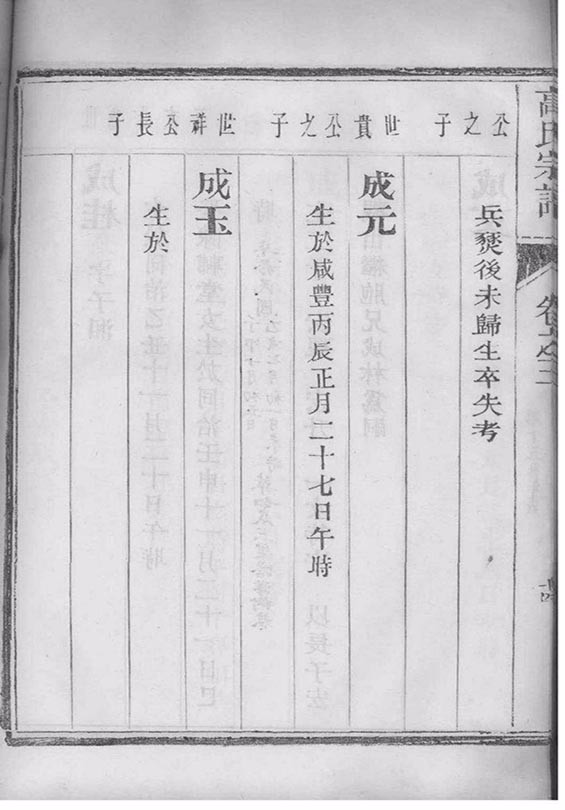 高氏宗譜
公之子
兵燹後未歸生卒失考
世貴公之子
成元
生於咸豐丙辰正月二十七日午時
世祥公長子
成玉
生於